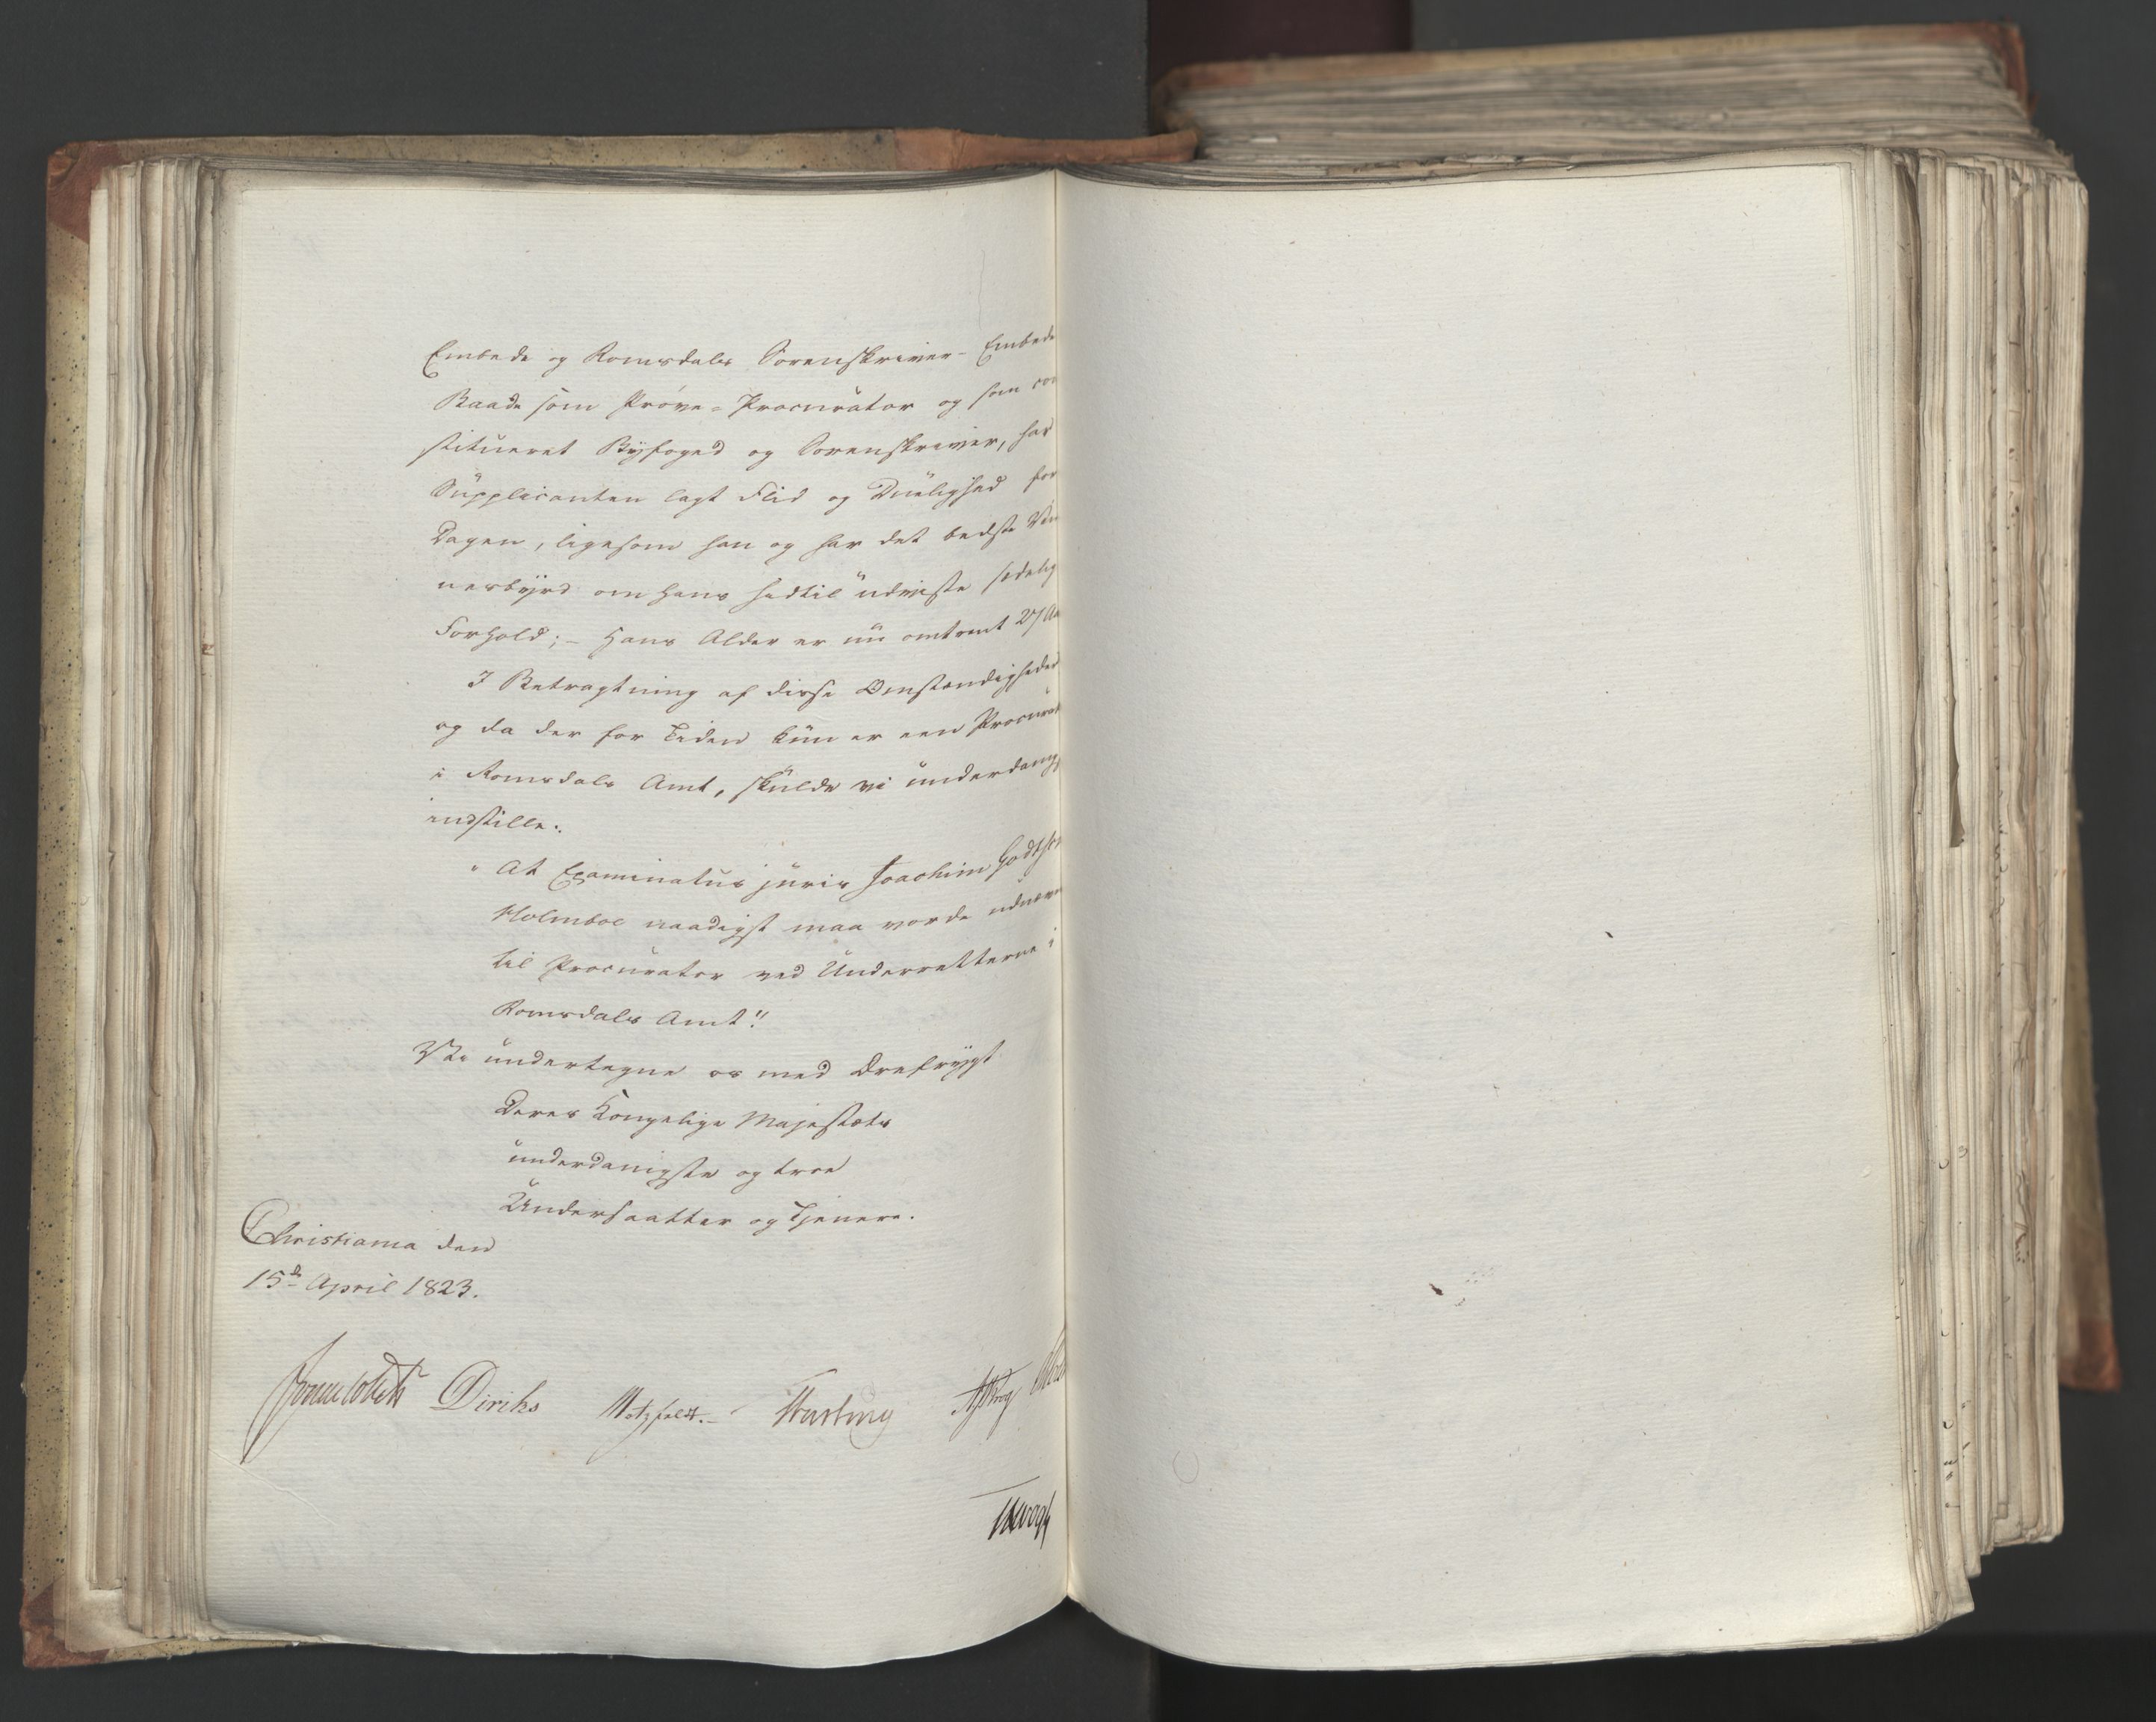 Embede og Romsdals Sorenskriver-Embede
Baade som Prøve-Procurator og som con
stitueret Byfoged og Sorenskriver, har
Supplicanten lagt Flid og Duelighed for
Dagen, ligesom han og har det bedste Vid
nesbyrd om hans hidtil udviste sædelig
Forhold; - Hans Alder er nu omtrent 27 Aa
I Betragtning af disse Omstændigheder
og da der for Tiden kun er een Procurat
i Romsdals Amt, skulde vi underdanig
indstille:
" At Examinatus juris Joachim Godtsk
Holmboe naadigst maa vorde udnævn
til Procurator ved Underretterne i
Romsdals Amt"
Vi undertegne os med Ærefrygt
Deres Kongelige Majestæts
underdanigste og troe
Undersaatter og Tjenere.
Christiania den
15de April 1823.
Sommerhielm Diriks Motzfeldt. Treschow Krog